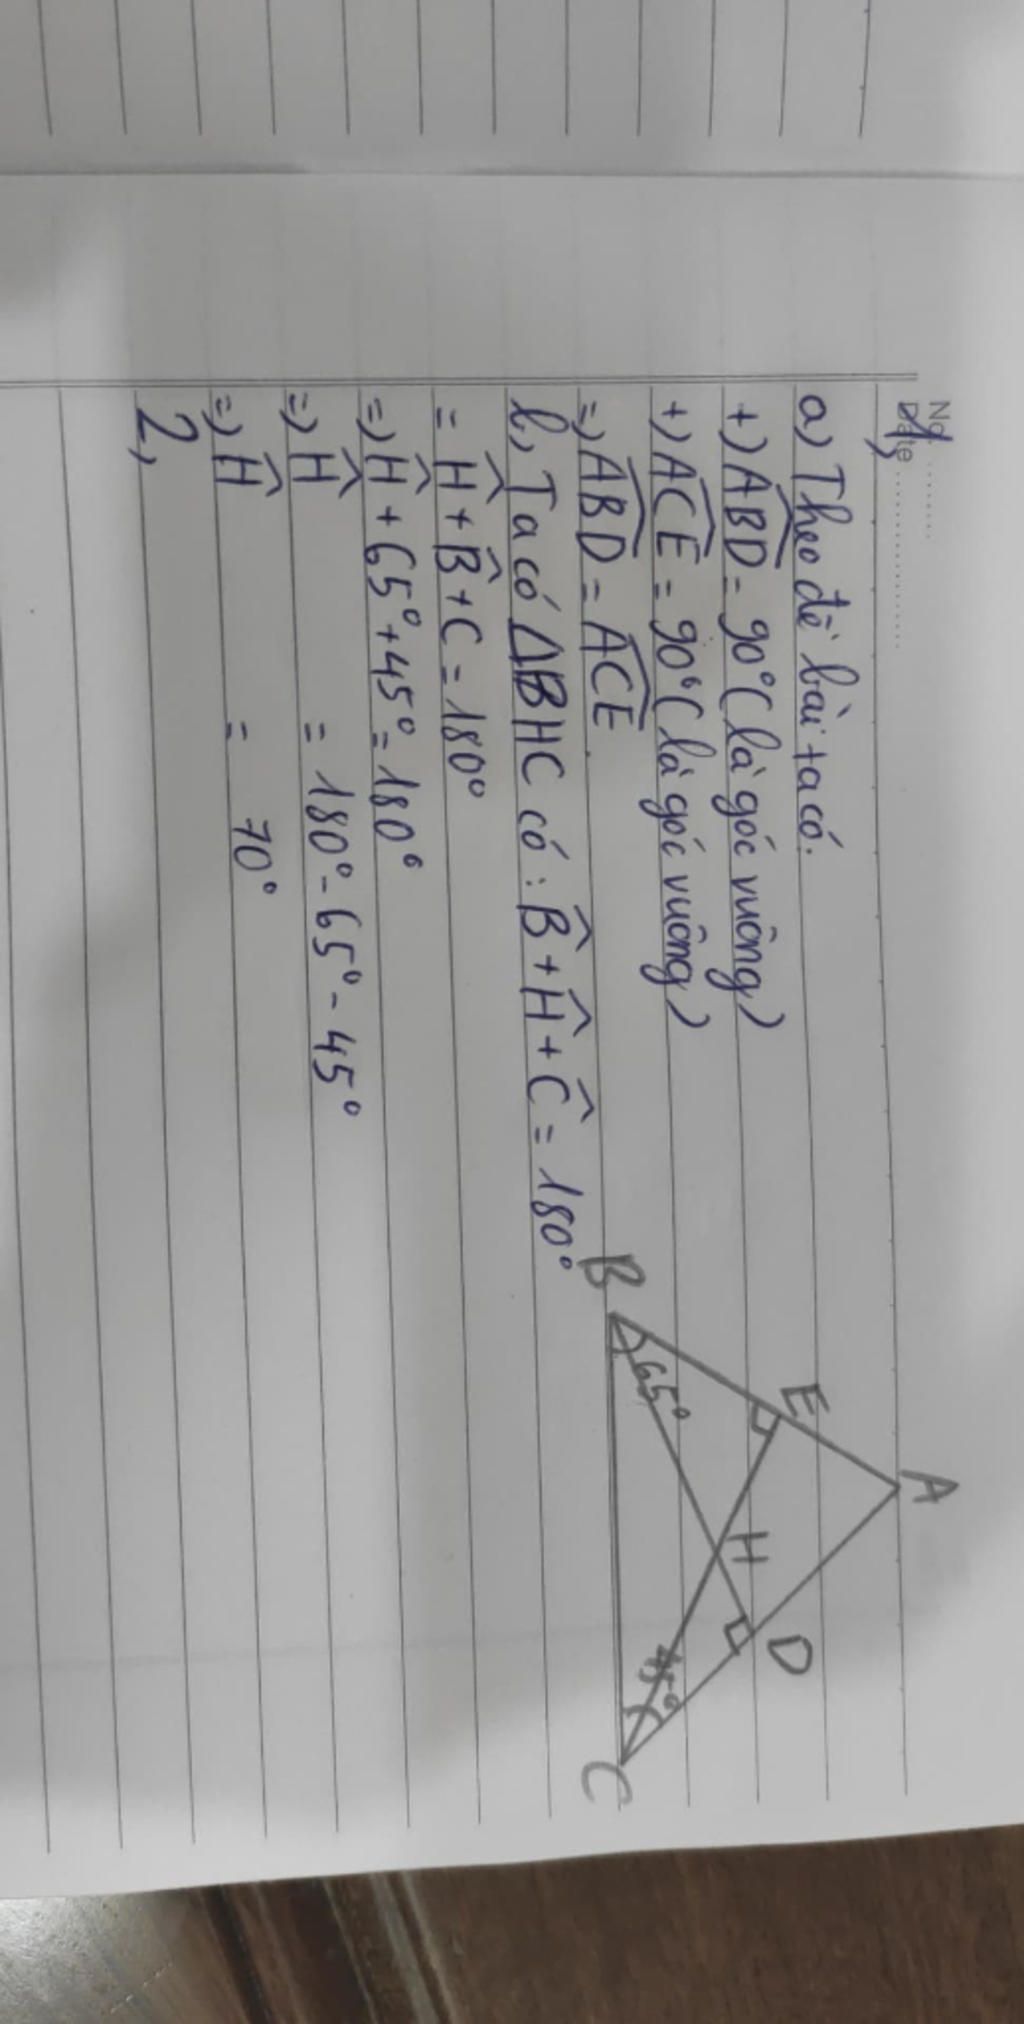 No. ..........
Date ....................
1,
a) Theo đề bài ta có.
+) ABD = 90° (là góc vuông)
+) ACE = 90° (là góc vuông)
=) ABD = ACE.
b, Ta có ΔBHC có: B̂ + Ĥ + Ĉ = 180°
= Ĥ + B̂ + C = 180°
=) Ĥ + 65° + 45° = 180°
=) Ĥ = 180° - 65° - 45°
=) Ĥ = 70°
2,
A
E
D
H
65°
45°
B
C